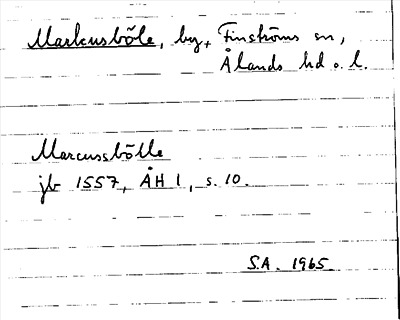 Markusböle, by, Finströms sn,
Ålands hd o. l.
Marcussbölle
jb 1557, ÅH 1, s. 10.
S.A. 1965